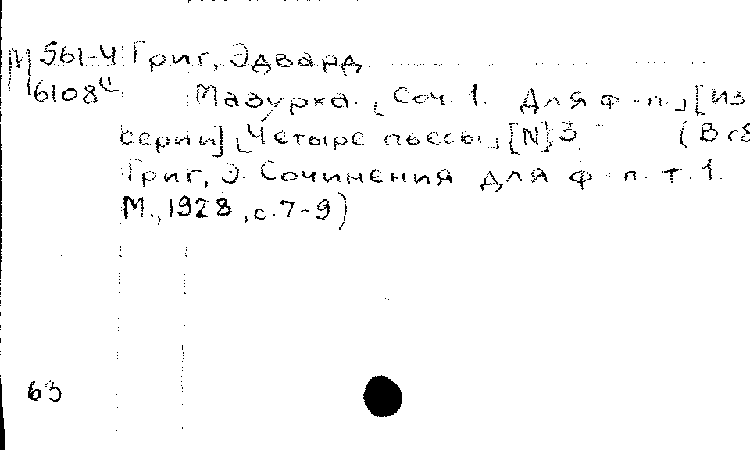 М 561-4 Григ, Эдвард
6108ч Мазурка. [Соч. 1. Для ф-п.] [Из
серии] [Четыре пьесы] [N] 3 (В сб
Григ, Э. Сочинения для ф-п. т. 1.
М., 1928, с. 7-9)
63